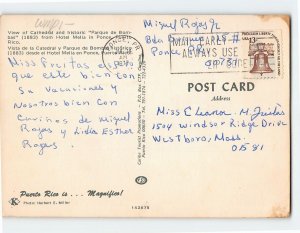 View of Cathedral and historic "Parque de Bom-
bas" (1883) from Hotel Melia in Ponce, Puerto
Rico.
Vista de la Catedral y Parque de Bombas histórico
(1883) desde el Hotel Melia en Ponce, Puerto Rico.
Miss Freitas espero
que este bien con
su vacaciones y
nosotros bien con
cariños de Miguel
Rojas y Lidia Esther
Rojas.
Puerto Rico is ... Magnifico!
Photo: Herbert S. Miller
K
PONCE, P.R.
PM
Miguel Rojas Jr
Bda
Ponce
00731
MAIL EARLY
ALWAYS USE
ZIP CODE
POST CARD
Address
Miss Eleanor M. Freitas
1504 Windsor Ridge Drive
Westboro, Mass.
01581
142675